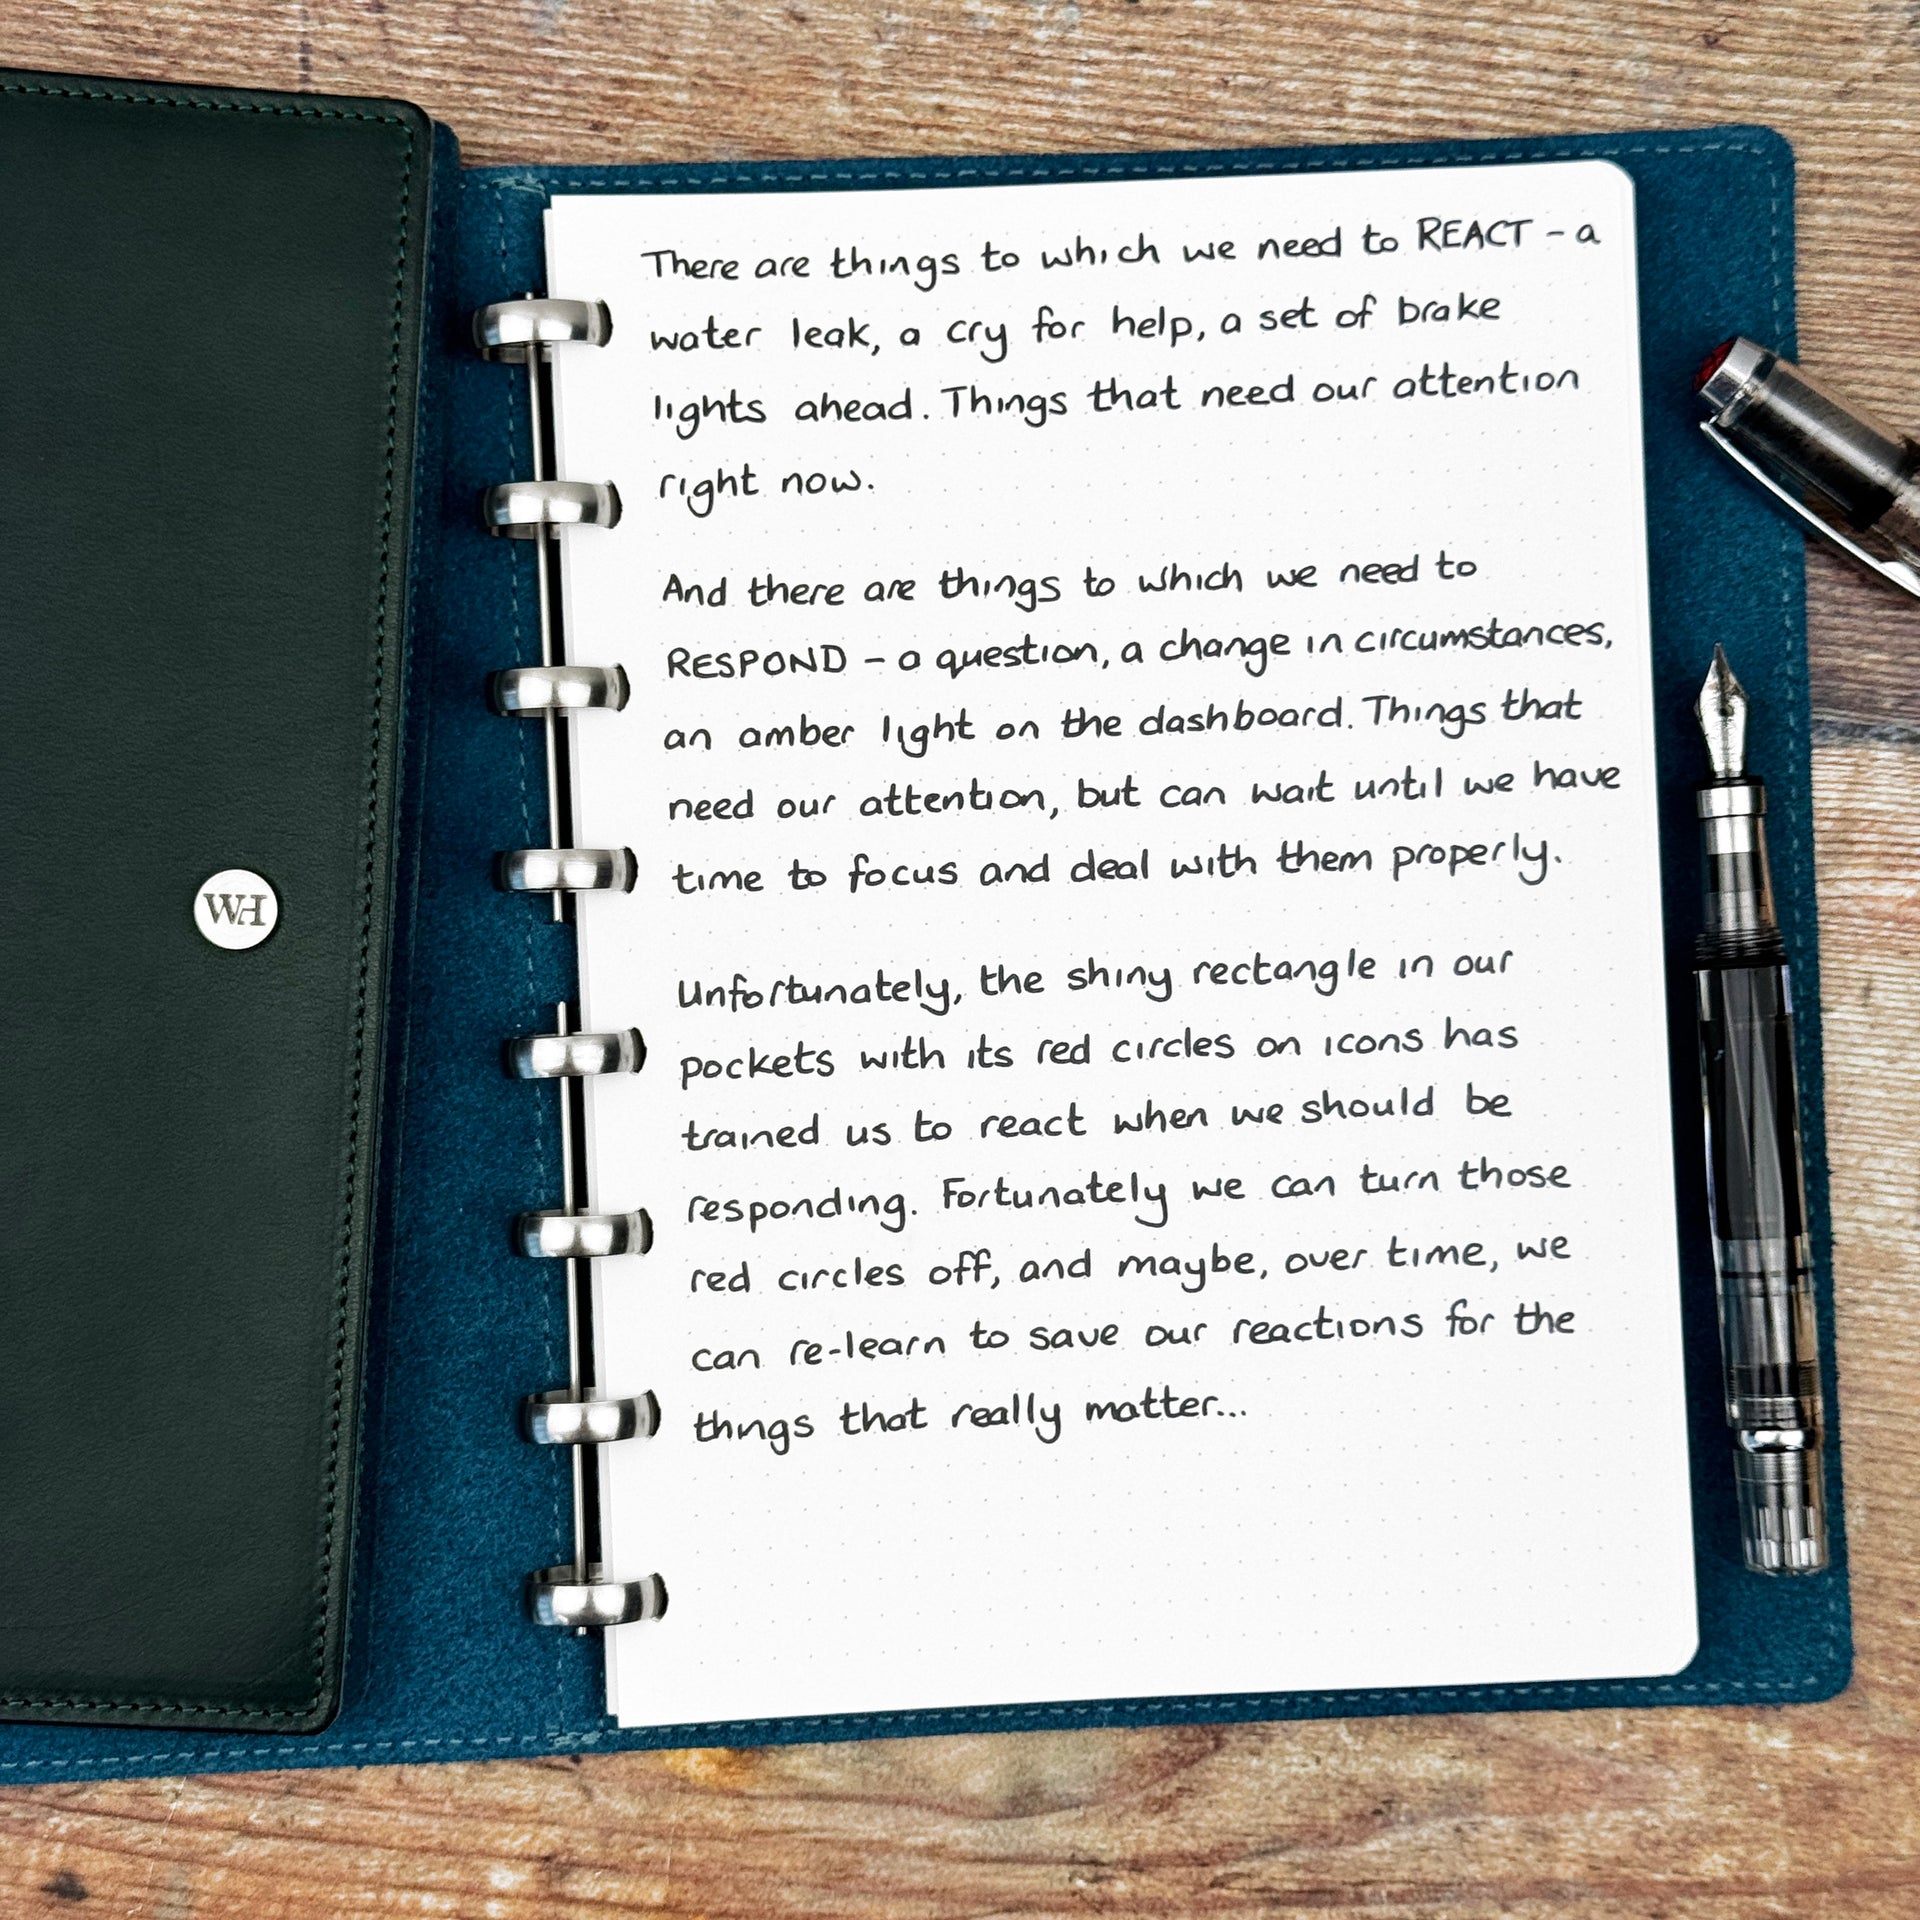 There are things to which we need to REACT - a
water leak, a cry for help, a set of brake
lights ahead. Things that need our attention
right now.
And there are things to which we need to
RESPOND - a question, a change in circumstances,
an amber light on the dashboard. Things that
need our attention, but can wait until we have
time to focus and deal with them properly.
Unfortunately, the shiny rectangle in our
pockets with its red circles on icons has
trained us to react when we should be
responding. Fortunately we can turn those
red circles off, and maybe, over time, we
can re-learn to save our reactions for the
things that really matter...
WH